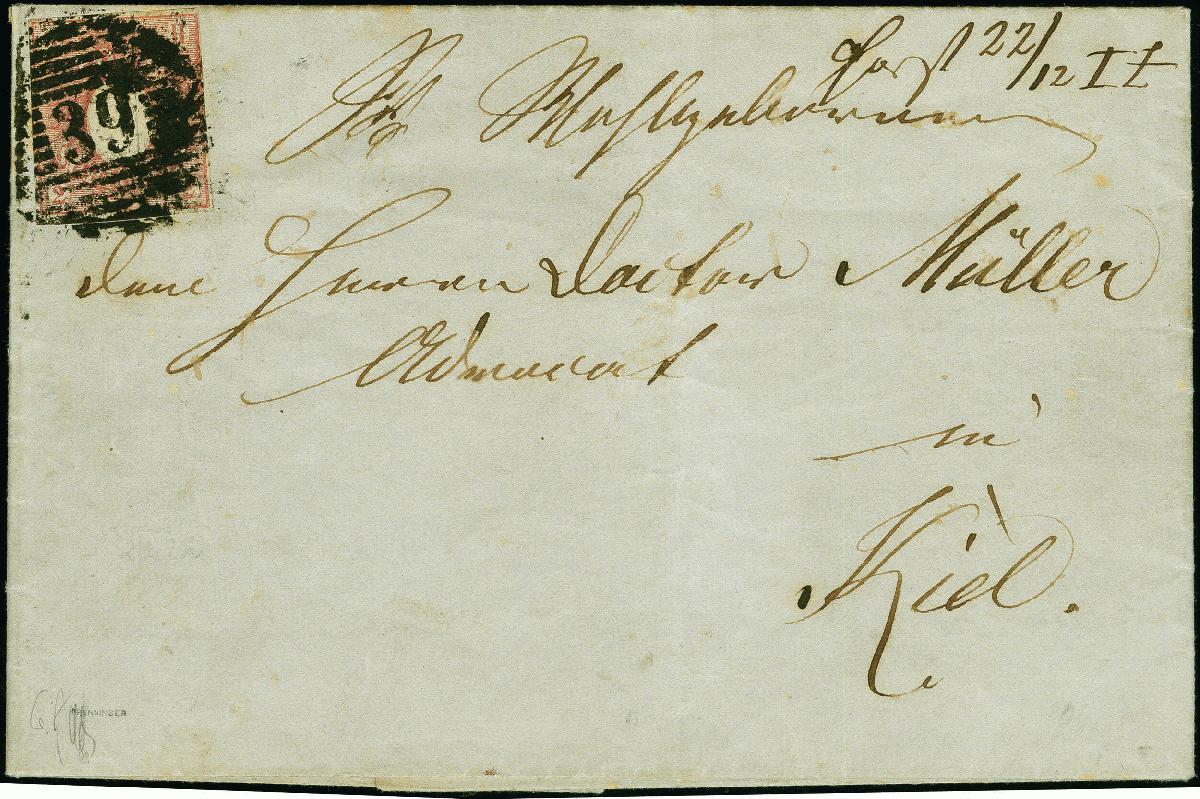 39
Horst 22/12 I Z
Sr Wohlgeboren
dem Herrn Doctor Müller
Advocat
in
Kiel.
PFENNINGER